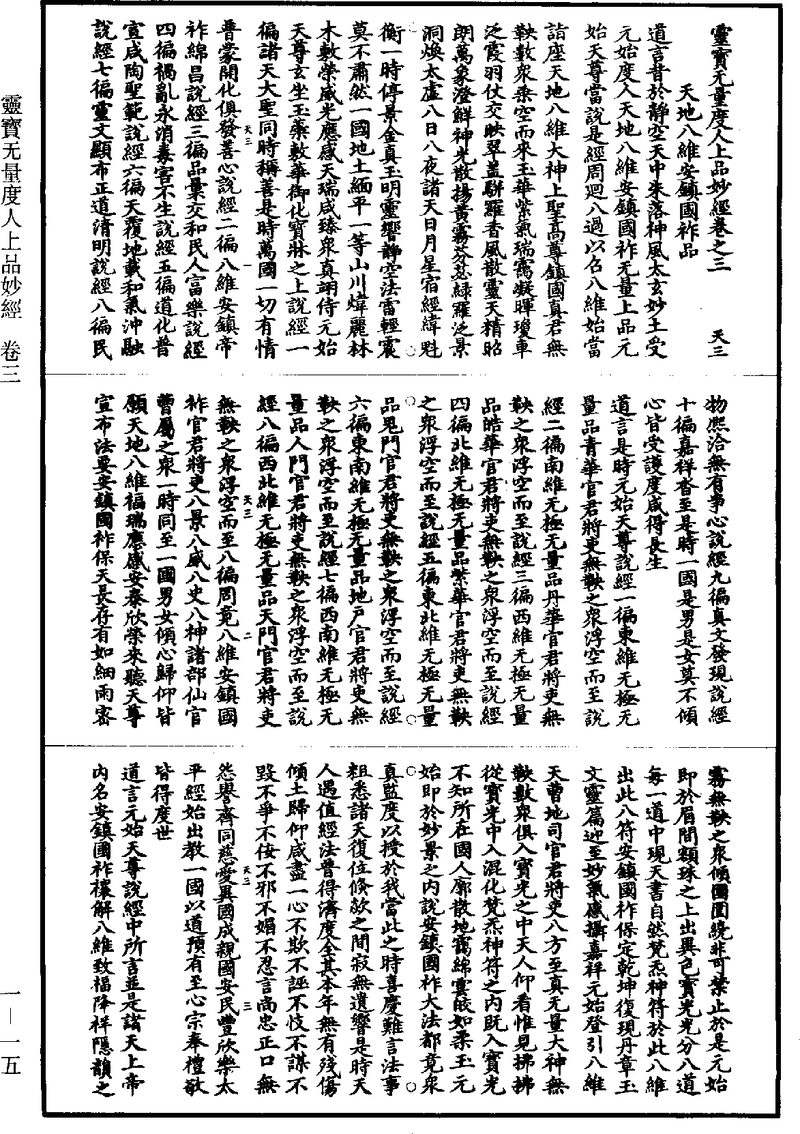 靈寶无量度人上品妙經卷之三 天三
天地八維安鎮國祚品
道言昔於靜空天中朱落神風太玄妙土受
元始度人天地八維安鎮國祚无量上品元
始天尊當說是經周迴八過以名八維始當
詣座天地八維大神上聖高尊鎮國真君無
鞅數衆乘空而來玉華紫氣瑞靄凝暉瓊車
泛霞羽仗交映翠蓋駢羅香風散靈天精昭
朗萬象澄鮮神光散揚黃霧芬葐綠羅泛景
洞煥太虛八日八夜諸天日月星宿經緯魁
衡一時停景金真玉明靈響靜空法雷輕震
莫不肅然一國地土緬平一等山川煒麗林
木敷榮威光應感天瑞咸臻衆真翊侍元始
天尊玄坐玉蘂敷華御化寶牀之上說經一
徧諸天大聖同時稱善是時萬國一切有情
普蒙開化俱發善心說經二徧八維安鎮帝
祚綿昌說經三徧品彙交和民人富樂說經
四徧禍亂永消毒害不生說經五徧道化普
宣咸陶聖範說經六徧天覆地載和氣沖融
說經七徧靈文顯布正道清明說經八徧民
物熙洽無有爭心說經九徧真文發現說經
十徧嘉祥沓至是時一國是男是女莫不傾
心皆受護度咸得長生
道言是時元始天尊說經一徧東維无極无
量品青華官君將吏無鞅之衆浮空而至說
經二徧南維无極无量品丹華官君將吏無
鞅之衆浮空而至說經三徧西維无極无量
品皓華官君將吏無鞅之衆浮空而至說經
四徧北維无極无量品紫華官君將吏無鞅
之衆浮空而至說經五徧東北維无極无量
品鬼門官君將吏無鞅之衆浮空而至說經
六徧東南維无極无量品地戶官君將吏無
鞅之衆浮空而至說經七徧西南維无極无
量品人門官君將吏無鞅之衆浮空而至說
經八徧西北維无極无量品天門官君將吏
無鞅之衆浮空而至八徧周竟八維安鎮國
祚官君將吏八景八威八史八神諸部仙官
曹屬之衆一時同至一國男女傾心歸仰皆
願天地八維福瑞應感安泰欣榮來聽天尊
宣布法要安鎮國祚保天長存有如細雨密
霧無鞅之衆傾國圍繞非可禁止於是元始
即於眉間顆珠之上出異色寶光光分八道
每一道中現天書自然梵炁神符於此八維
出此八符安鎮國祚保定乾坤復現丹章玉
文靈篇迎至妙氣感攝嘉祥元始登引八維
天曹地司官君將吏八方至真无量大神無
鞅數衆俱入寶光之中天人仰看惟見拂拂
從寶光中入混化梵炁神符之內既入寶光
不知所在國人廓散地靄綿靈皎如柔玉元
始即於妙景之內說安鎮國祚大法都竟衆
真監度以授於我當此之時喜慶難言法事
粗悉諸天復位倏欻之間寂無遺響是時天
人遇值經法普得濟度全其本年無有殘傷
傾土歸仰咸盡一心不欺不誣不忮不謀不
毀不爭不伎不邪不媚不忍言尚忠正口無
怨譽齊同慈愛異國成親國安民豐欣樂太
平經始出教一國以道預有至心宗奉禮敬
皆得度世
道言元始天尊說經中所言並是諸天上帝
內名安鎮國祚禳解八維致福降祥隱韻之
天三 一
天三 二
天三 三
靈寶无量度人上品妙經 卷三
一—一五